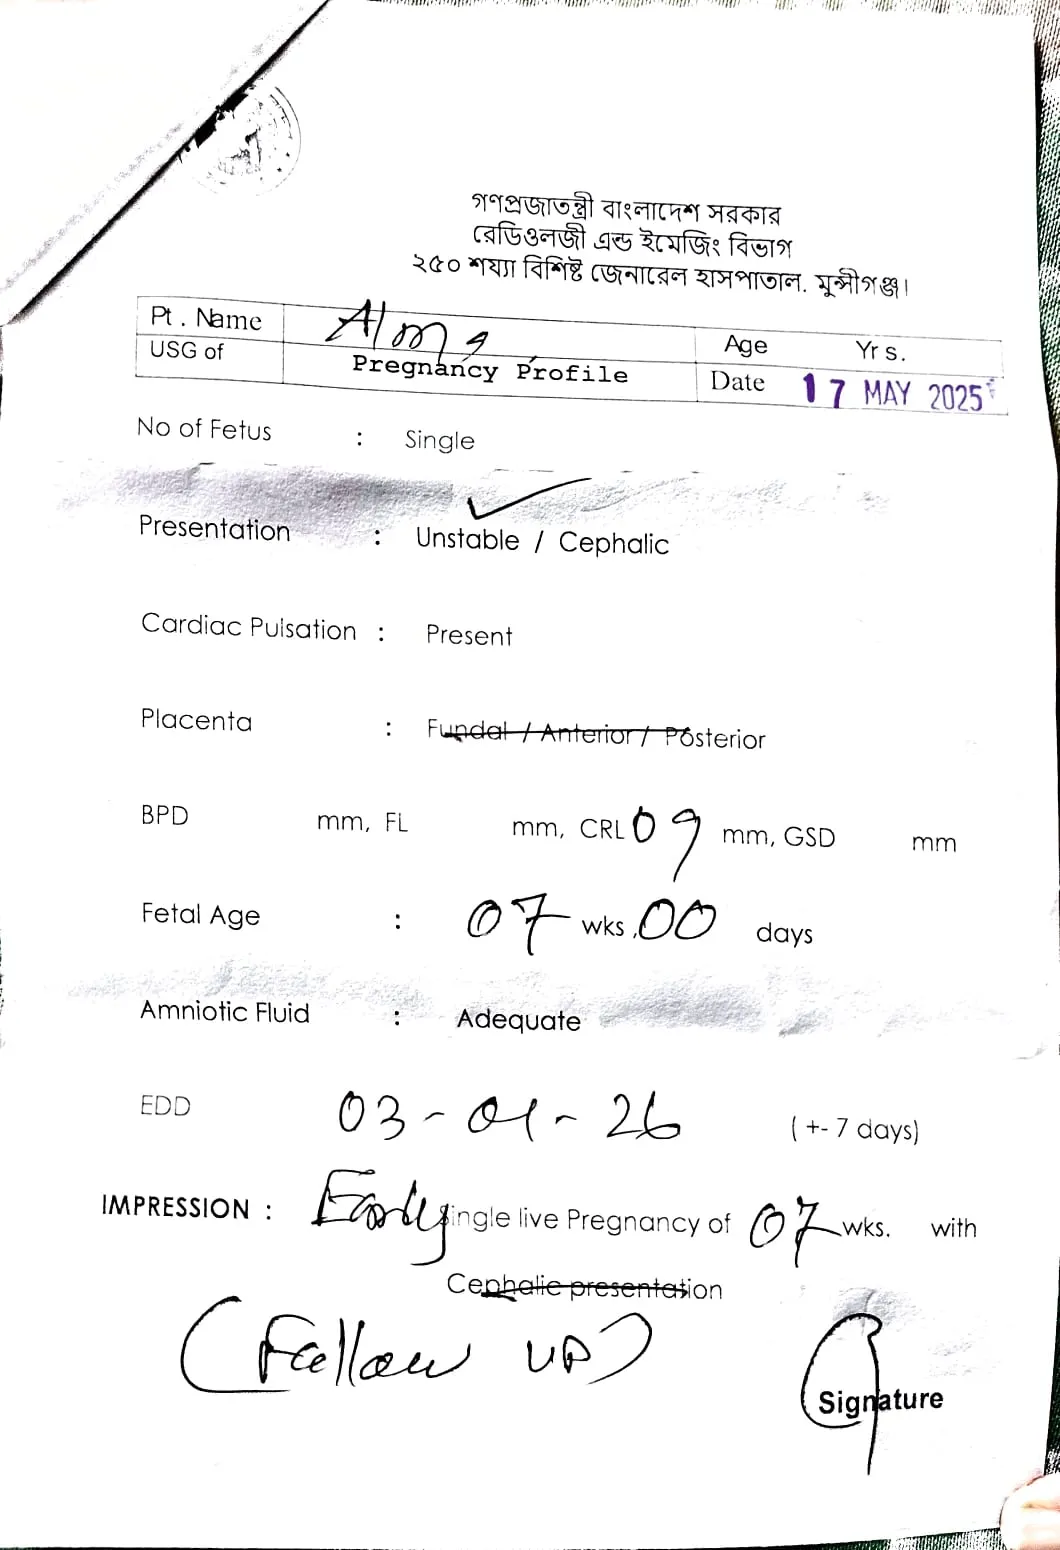 গণপ্রজাতন্ত্রী বাংলাদেশ সরকার
রেডিওলজী এন্ড ইমেজিং বিভাগ
২৫০ শয্যা বিশিষ্ট জেনারেল হাসপাতাল. মুন্সীগঞ্জ।
Pt. Name Alma Age Yrs.
USG of Pregnancy Profile Date 17 MAY 2025
No of Fetus : Single
Presentation : Unstable / Cephalic
Cardiac Pulsation : Present
Placenta : Fundal / Anterior / Posterior
BPD mm, FL mm, CRL 09 mm, GSD mm
Fetal Age : 07 wks, 00 days
Amniotic Fluid : Adequate
EDD 03-01-26 (+- 7 days)
IMPRESSION : Early Single live Pregnancy of 07 wks. with
Cephalic presentation
(Follow up)
Signature